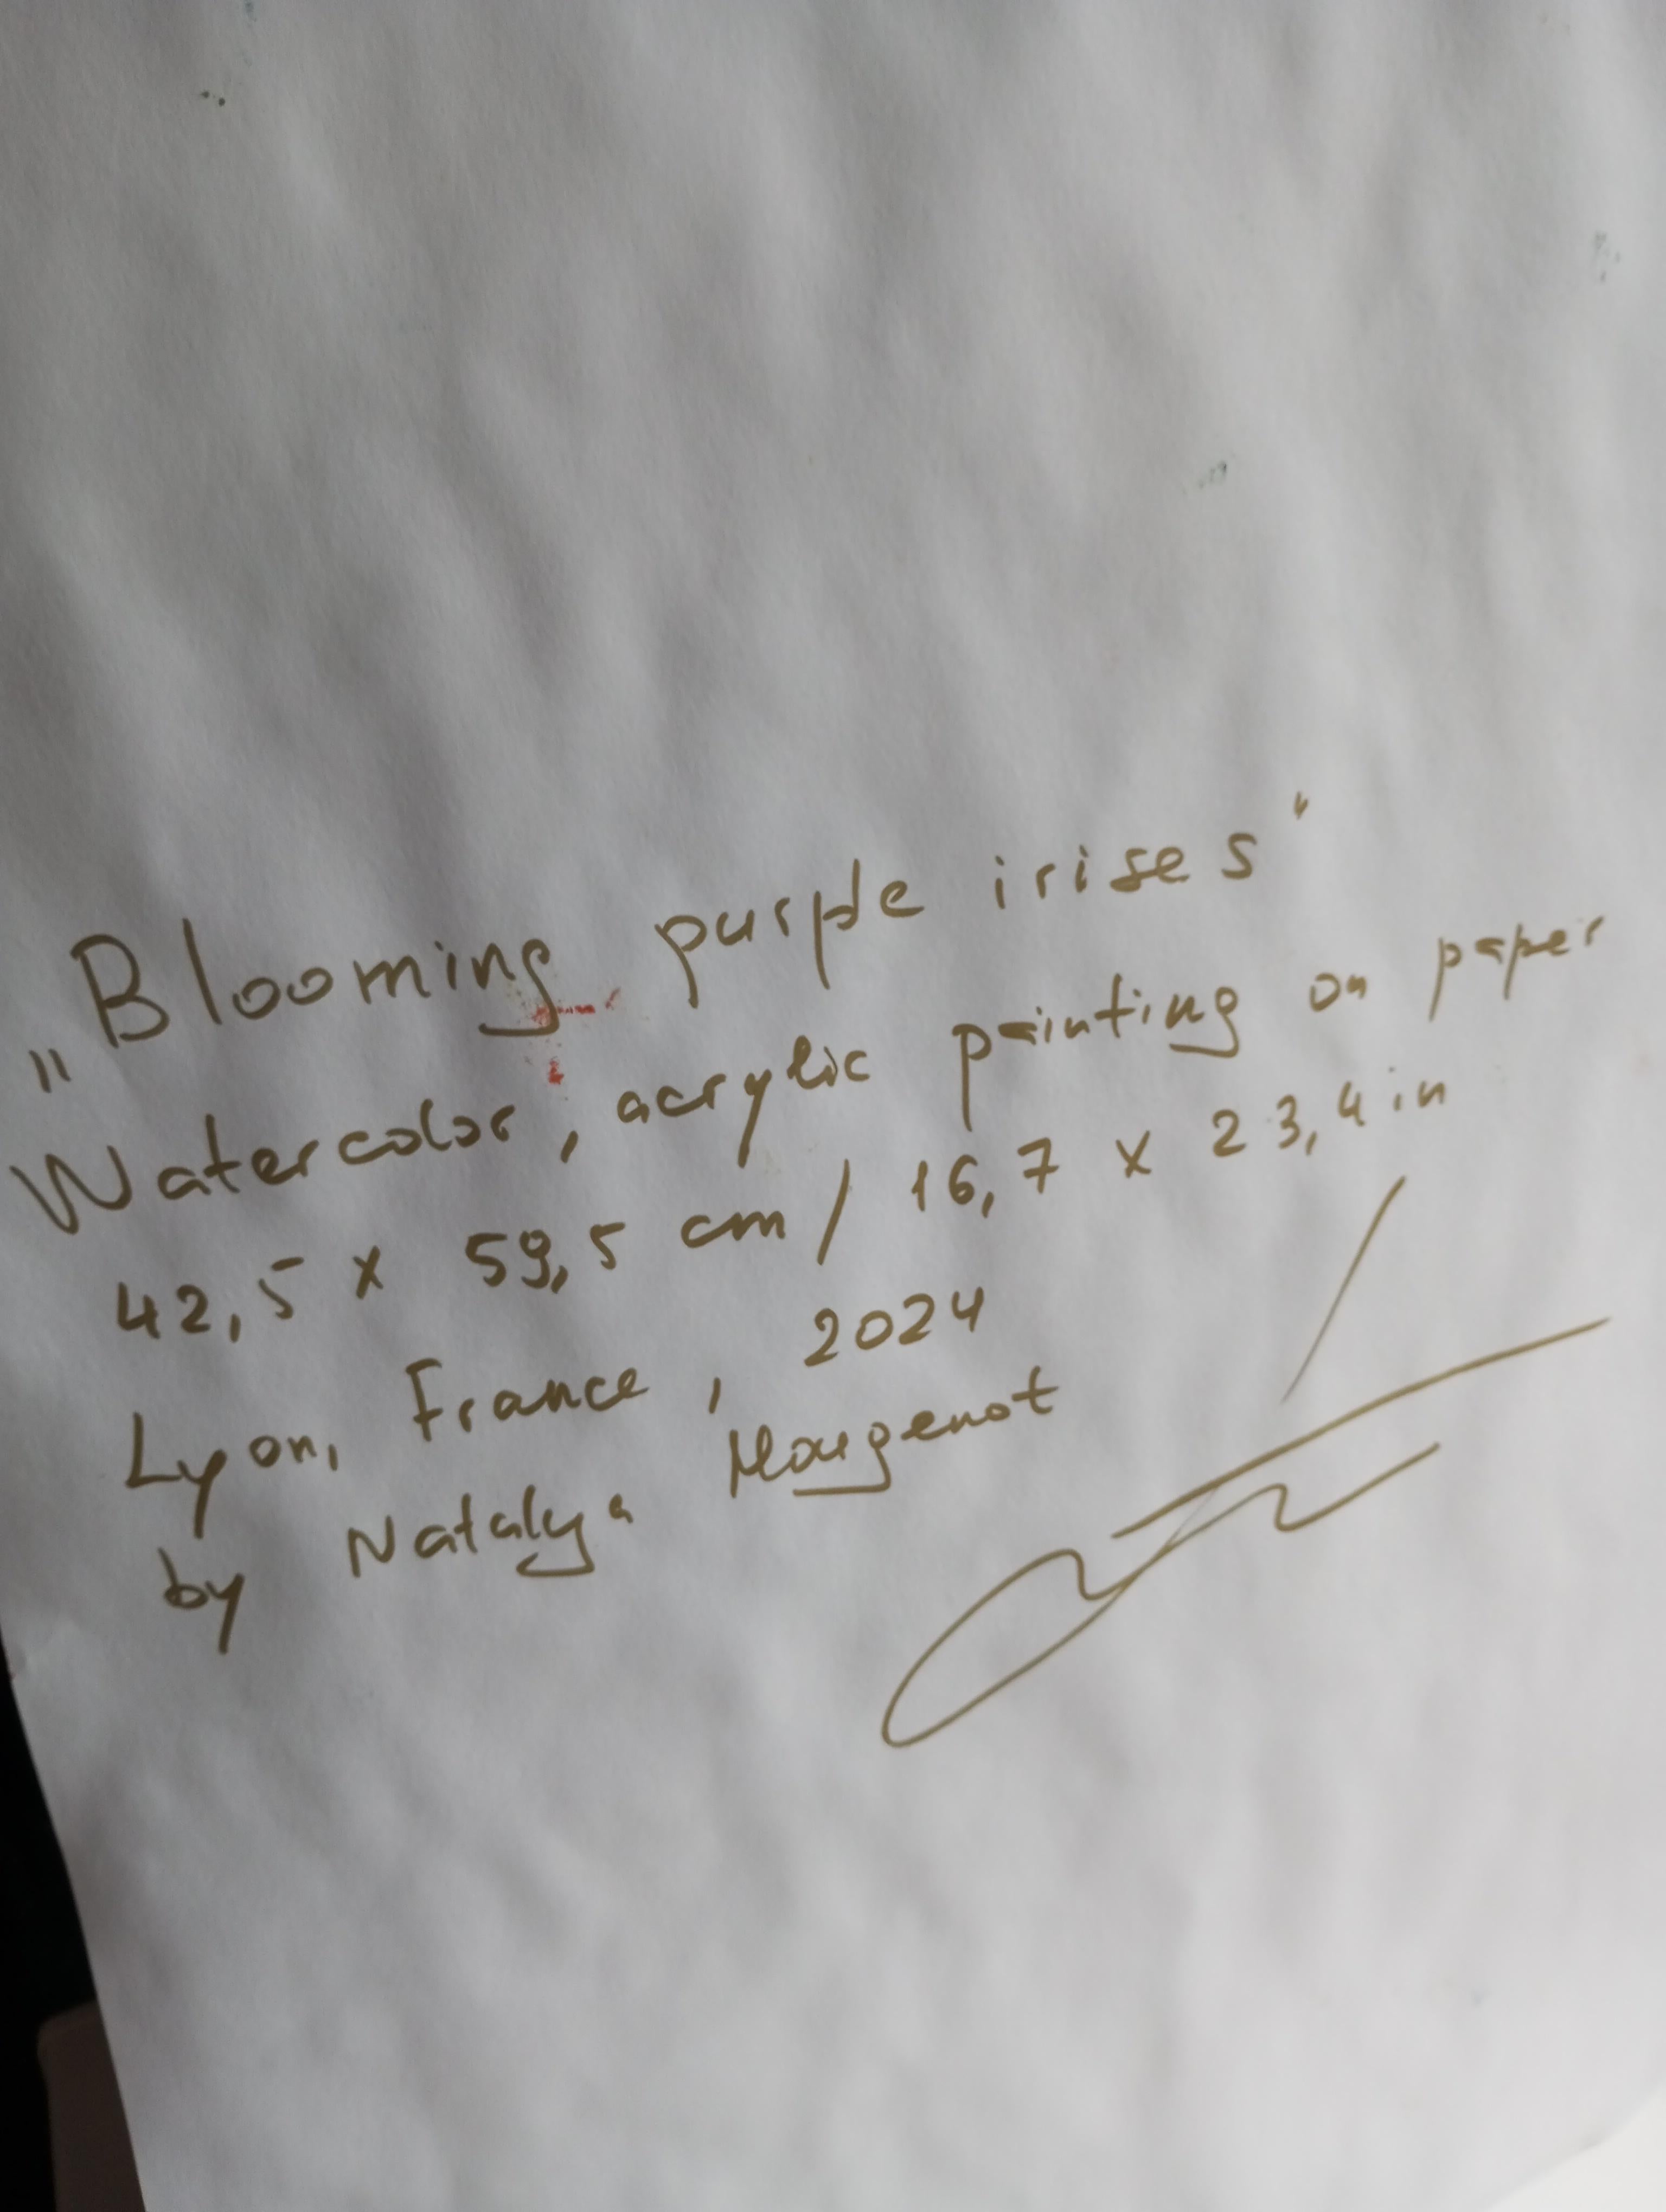 „Blooming purple irises"
Watercolor, acrylic painting on paper
42,5 x 59,5 cm / 16,7 x 23,4 in
Lyon, France, 2024
by Natalya Mougenot